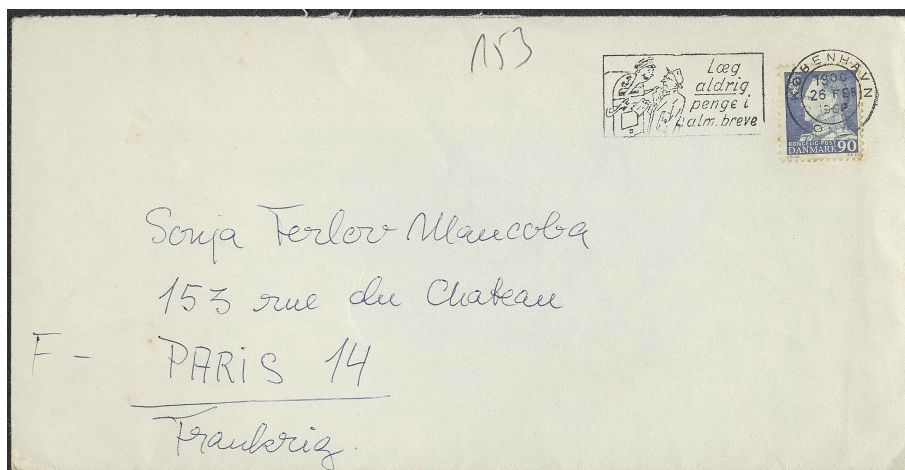 153
Læg
aldrig
penge i
alm. breve
KØBENHAVN
1900
26 FEB
KONGELIG POST
DANMARK 90
Sonja Ferlov Mancoba
153 rue du Chateau
F - PARIS 14
Frankrig.